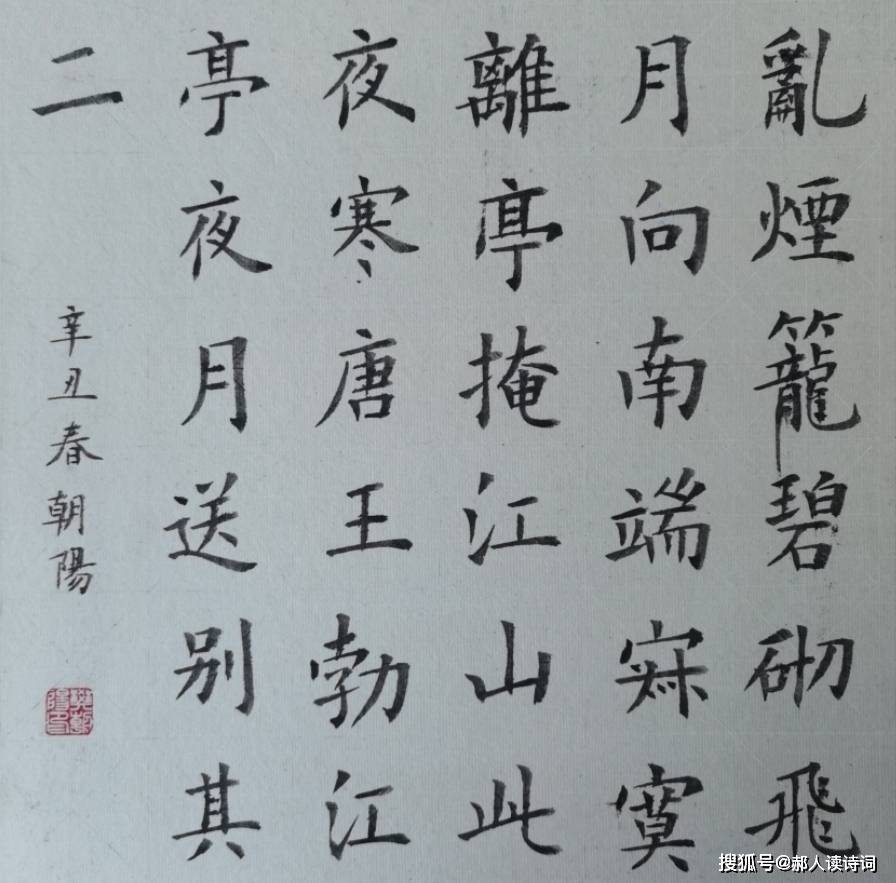 亂煙籠碧砌飛
月向南端寂寞
離亭掩江山此
夜寒唐王勃江
亭夜月送别其
二
辛丑春朝陽
搜狐号@郝人读诗词